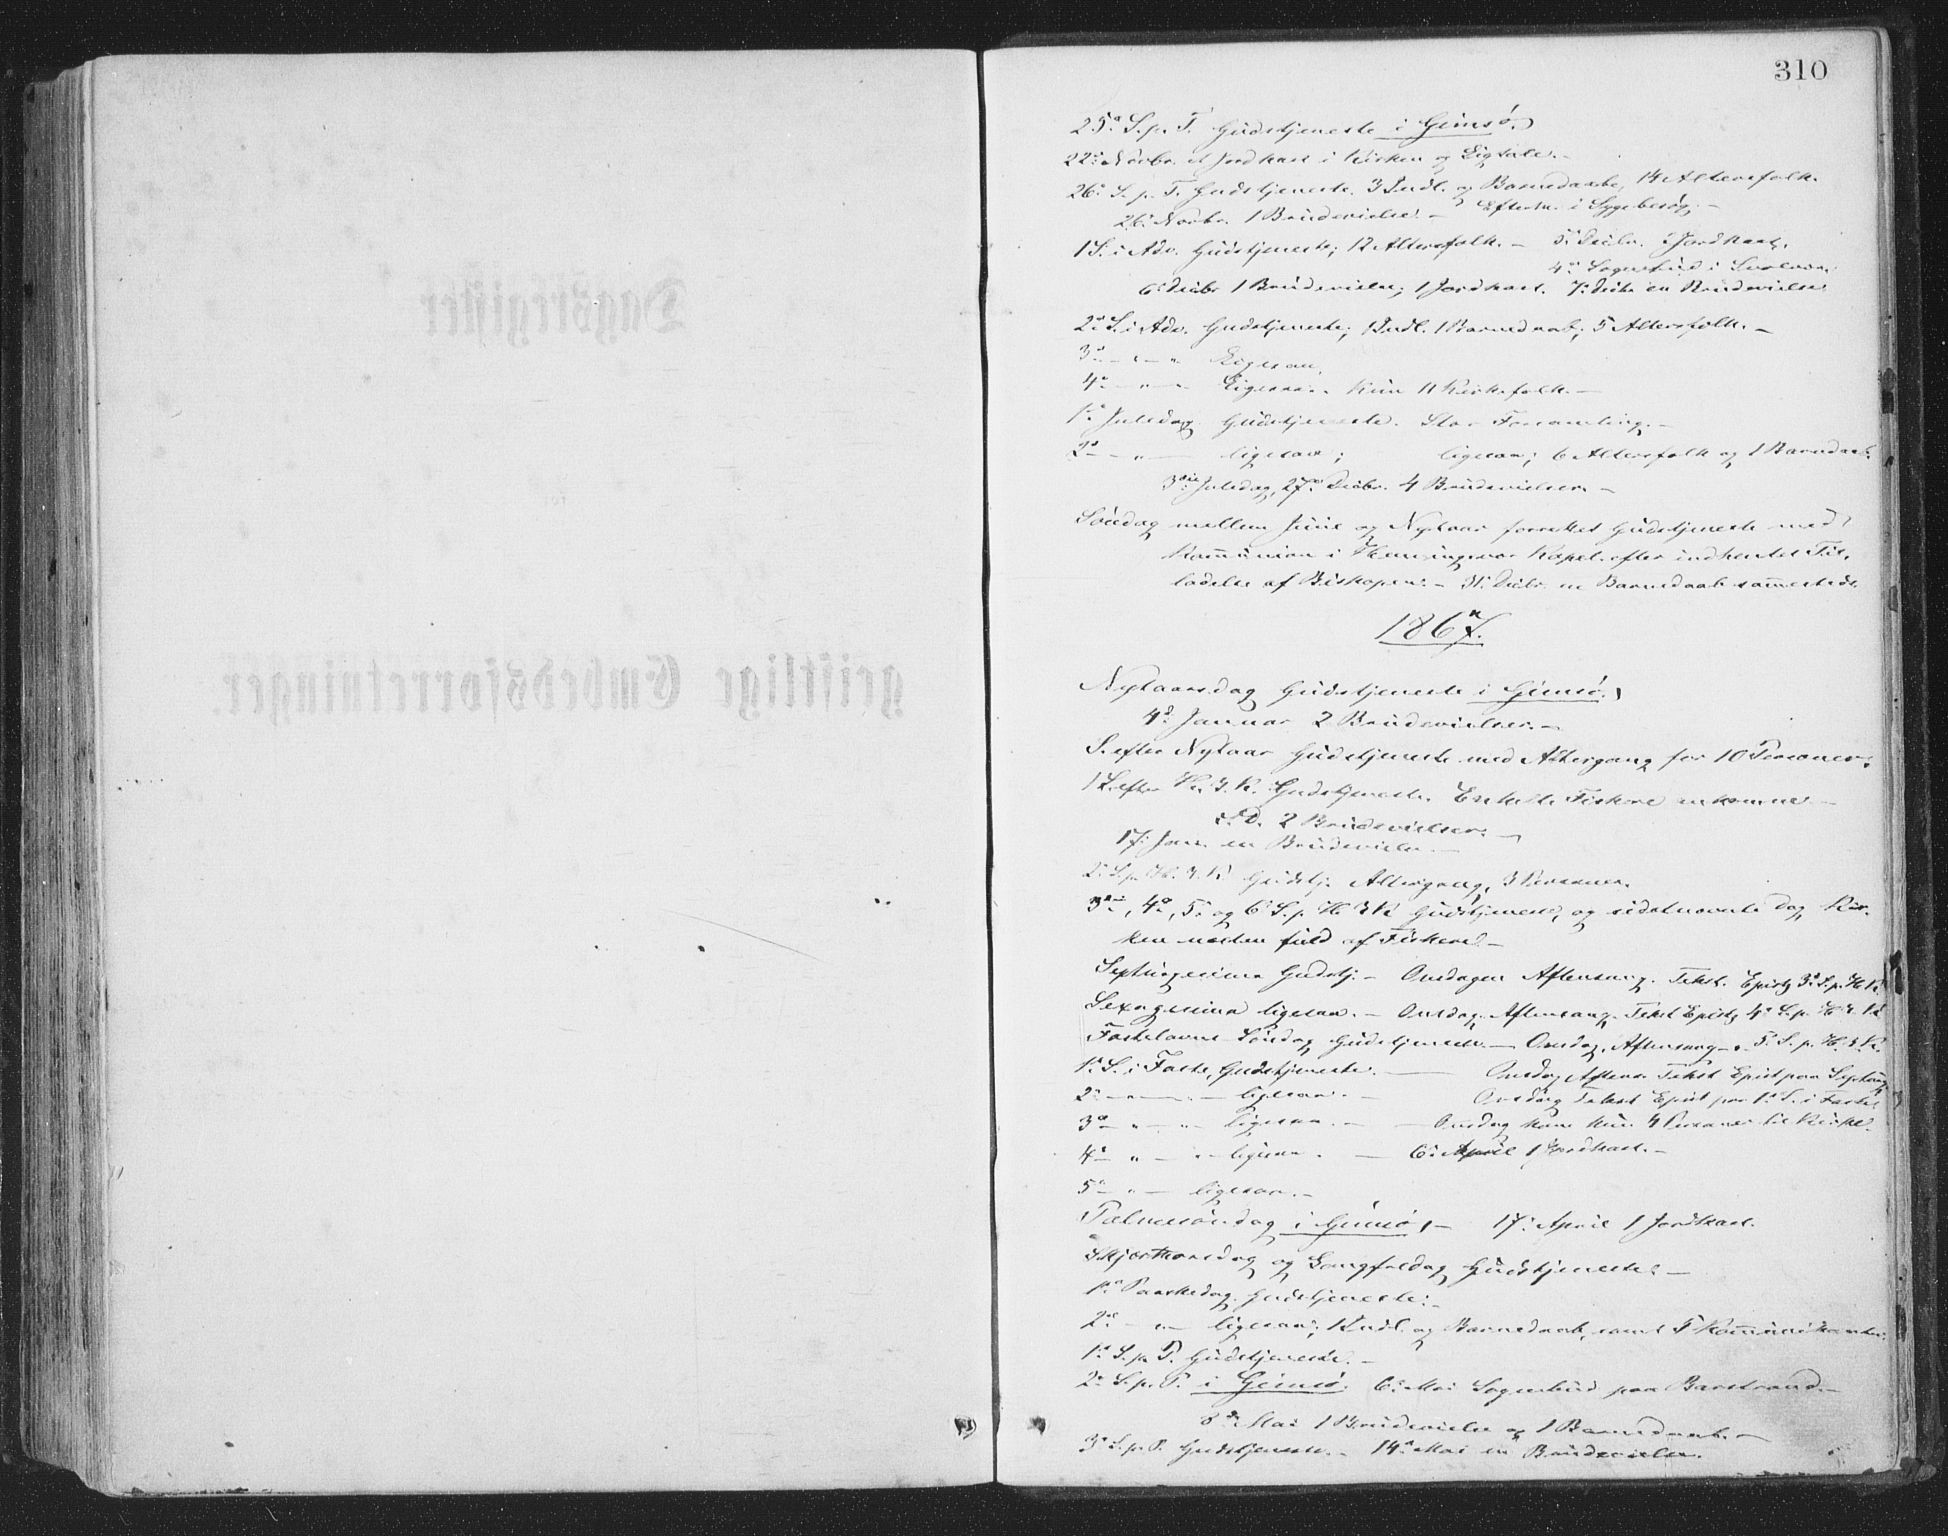 310
25: S. p. T. Gudstjeneste i Gimsö.
22: Novbr. et Jordkast i Kirken og Ligtale. -
26: S. p. T. Gudstjeneste. 3 Indl. og Barnedaabe, 14 Altersfolk.
26: Novbr. 1 Brudevielse. - Efterm. i Sygebesög. -
1 S. i Adv. Gudstjeneste; 12 Altersfolk. - 5: Decbr. 1 Jordkast.
4: Sognebud i Svolvær.
6: Decbr 1 Brudevielse; 1 Jordkast. 7: Decbr en Brudevielse.
2: S. i Adv. Gudstjeneste; 1 Indl. 1 Barnedaab; 5 Altersfolk. -
3: - " - " Ligesaa.
4: - " - " Ligesaa. Kun 11 Kirkefolk. -
1: Juledag Gudstjeneste. Stor Forsamling. -
2: - " - ligesaa; ligesaa; 6 Altersfolk og 1 Barnedaab.
3die Juledag, 27: Decbr. 4 Brudevielser. -
Söndag mellem Juul og Nytaar forrettet Gudstjeneste med
Kommunion i Henningsvær Kapel efter indhentet Til-
ladelse af Biskopen. - 31: Decbr. en Barnedaab sammesteds.
1867.
Nytaarsdag Gudstjeneste i Gimsö.
4: Januar 2 Brudevielser. -
S. efter Nytaar Gudstjeneste med Altergang for 10 Personer.
1 S. efter H. 3. K. Gudstjeneste. Enkelte Fiskere ankomne. -
s. D. 2 Brudevielser. -
17: Jan. en Brudevielse. -
2: S. p. H. 3. K. Gudstj. Altergang, 3 Personer.
3:, 4:, 5: og 6: S. p. H. 3 K. Gudstjeneste, og sidstnævnte Dag Kir-
ken næsten fuld af Fiskere. -
Septuagesima Gudstj. - Onsdagen Aftensang. Tekst. Epist. 3: S. p. H. K.
Sexagesima ligesaa. - Onsdag Aftensang. Tekst Epist. 4: S. p. H. 3. K.
Fastelavns Söndag Gudstjeneste. - Onsdag. Aftensang - " 5. S. p. H. 3. K.
1: S. i Faste, Gudstjeneste. - Onsdag Aftens. Tekst Epist paa Septuag.
2: - " - " - ligesaa. - Onsdag Tekst Epist paa 1: S. i Faste
3: - " - " - ligesaa. - - Onsdag kom kun 4 Personer til Kirke.
4: - " - " - ligesaa. - 6: April 1 Jordkast. -
5: - " - ligesaa. -
Palmesöndag i Gimsö, - 17: April 1 Jordkast.
Skjærthorsdag og Langfredag Gudstjeneste. -
1: Paaskedag. Gudstjeneste. -
2: - " - ligesaa; 1 Indl. og Barnedaab, samt 5 Kommunikanter.
1: S. p. P. Gudstjeneste. -
2: S. p. P. i Gimsö. 6: Mai Sognebud paa Barstrand. -
8: Mai 1 Brudevielse og 1 Barnedaab. -
3: S. p. P. Gudstjeneste. - 14: Mai en Brudevielse.